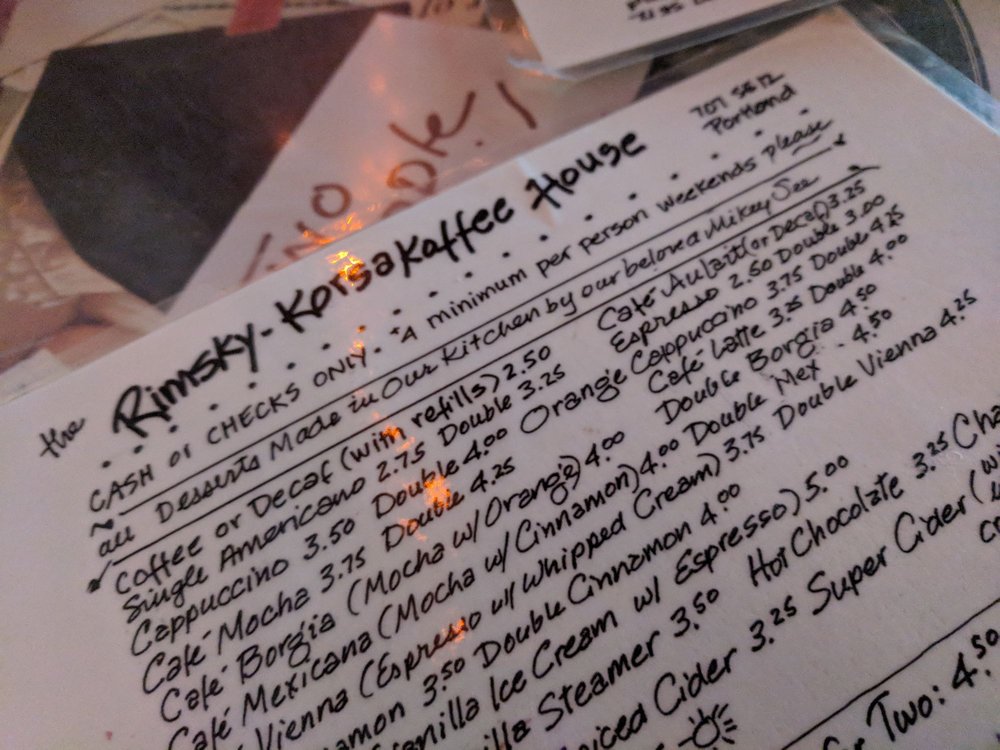 NO
the Rimsky-Korsakaffee House
707 SE 12
Portland
CASH or CHECKS ONLY. A minimum per person weekends please
all Desserts Made in Our Kitchen by our beloved Mikey See
Coffee or Decaf (with refills) 2.50 Café Au Lait (or Decaf) 3.25
Single Americano 2.75 Double 3.25 Espresso 2.50 Double 3.00
Cappuccino 3.50 Double 4.00 Orange Cappuccino 3.75 Double 4.25
Café Mocha 3.75 Double 4.25 Café Latte 3.25 Double 4.00
Café Borgia (Mocha w/ Orange) 4.00 Double Borgia 4.50
Café Mexicana (Mocha w/ Cinnamon) 4.00 Double Mex 4.50
Vienna (Espresso w/ Whipped Cream) 3.75 Double Vienna 4.25
3.50 Double Cinnamon 4.00
Vanilla Ice Cream w/ Espresso) 5.00
Steamer 3.50 Hot Chocolate 3.25
Cider 3.25 Super Cider
Two: 4.50